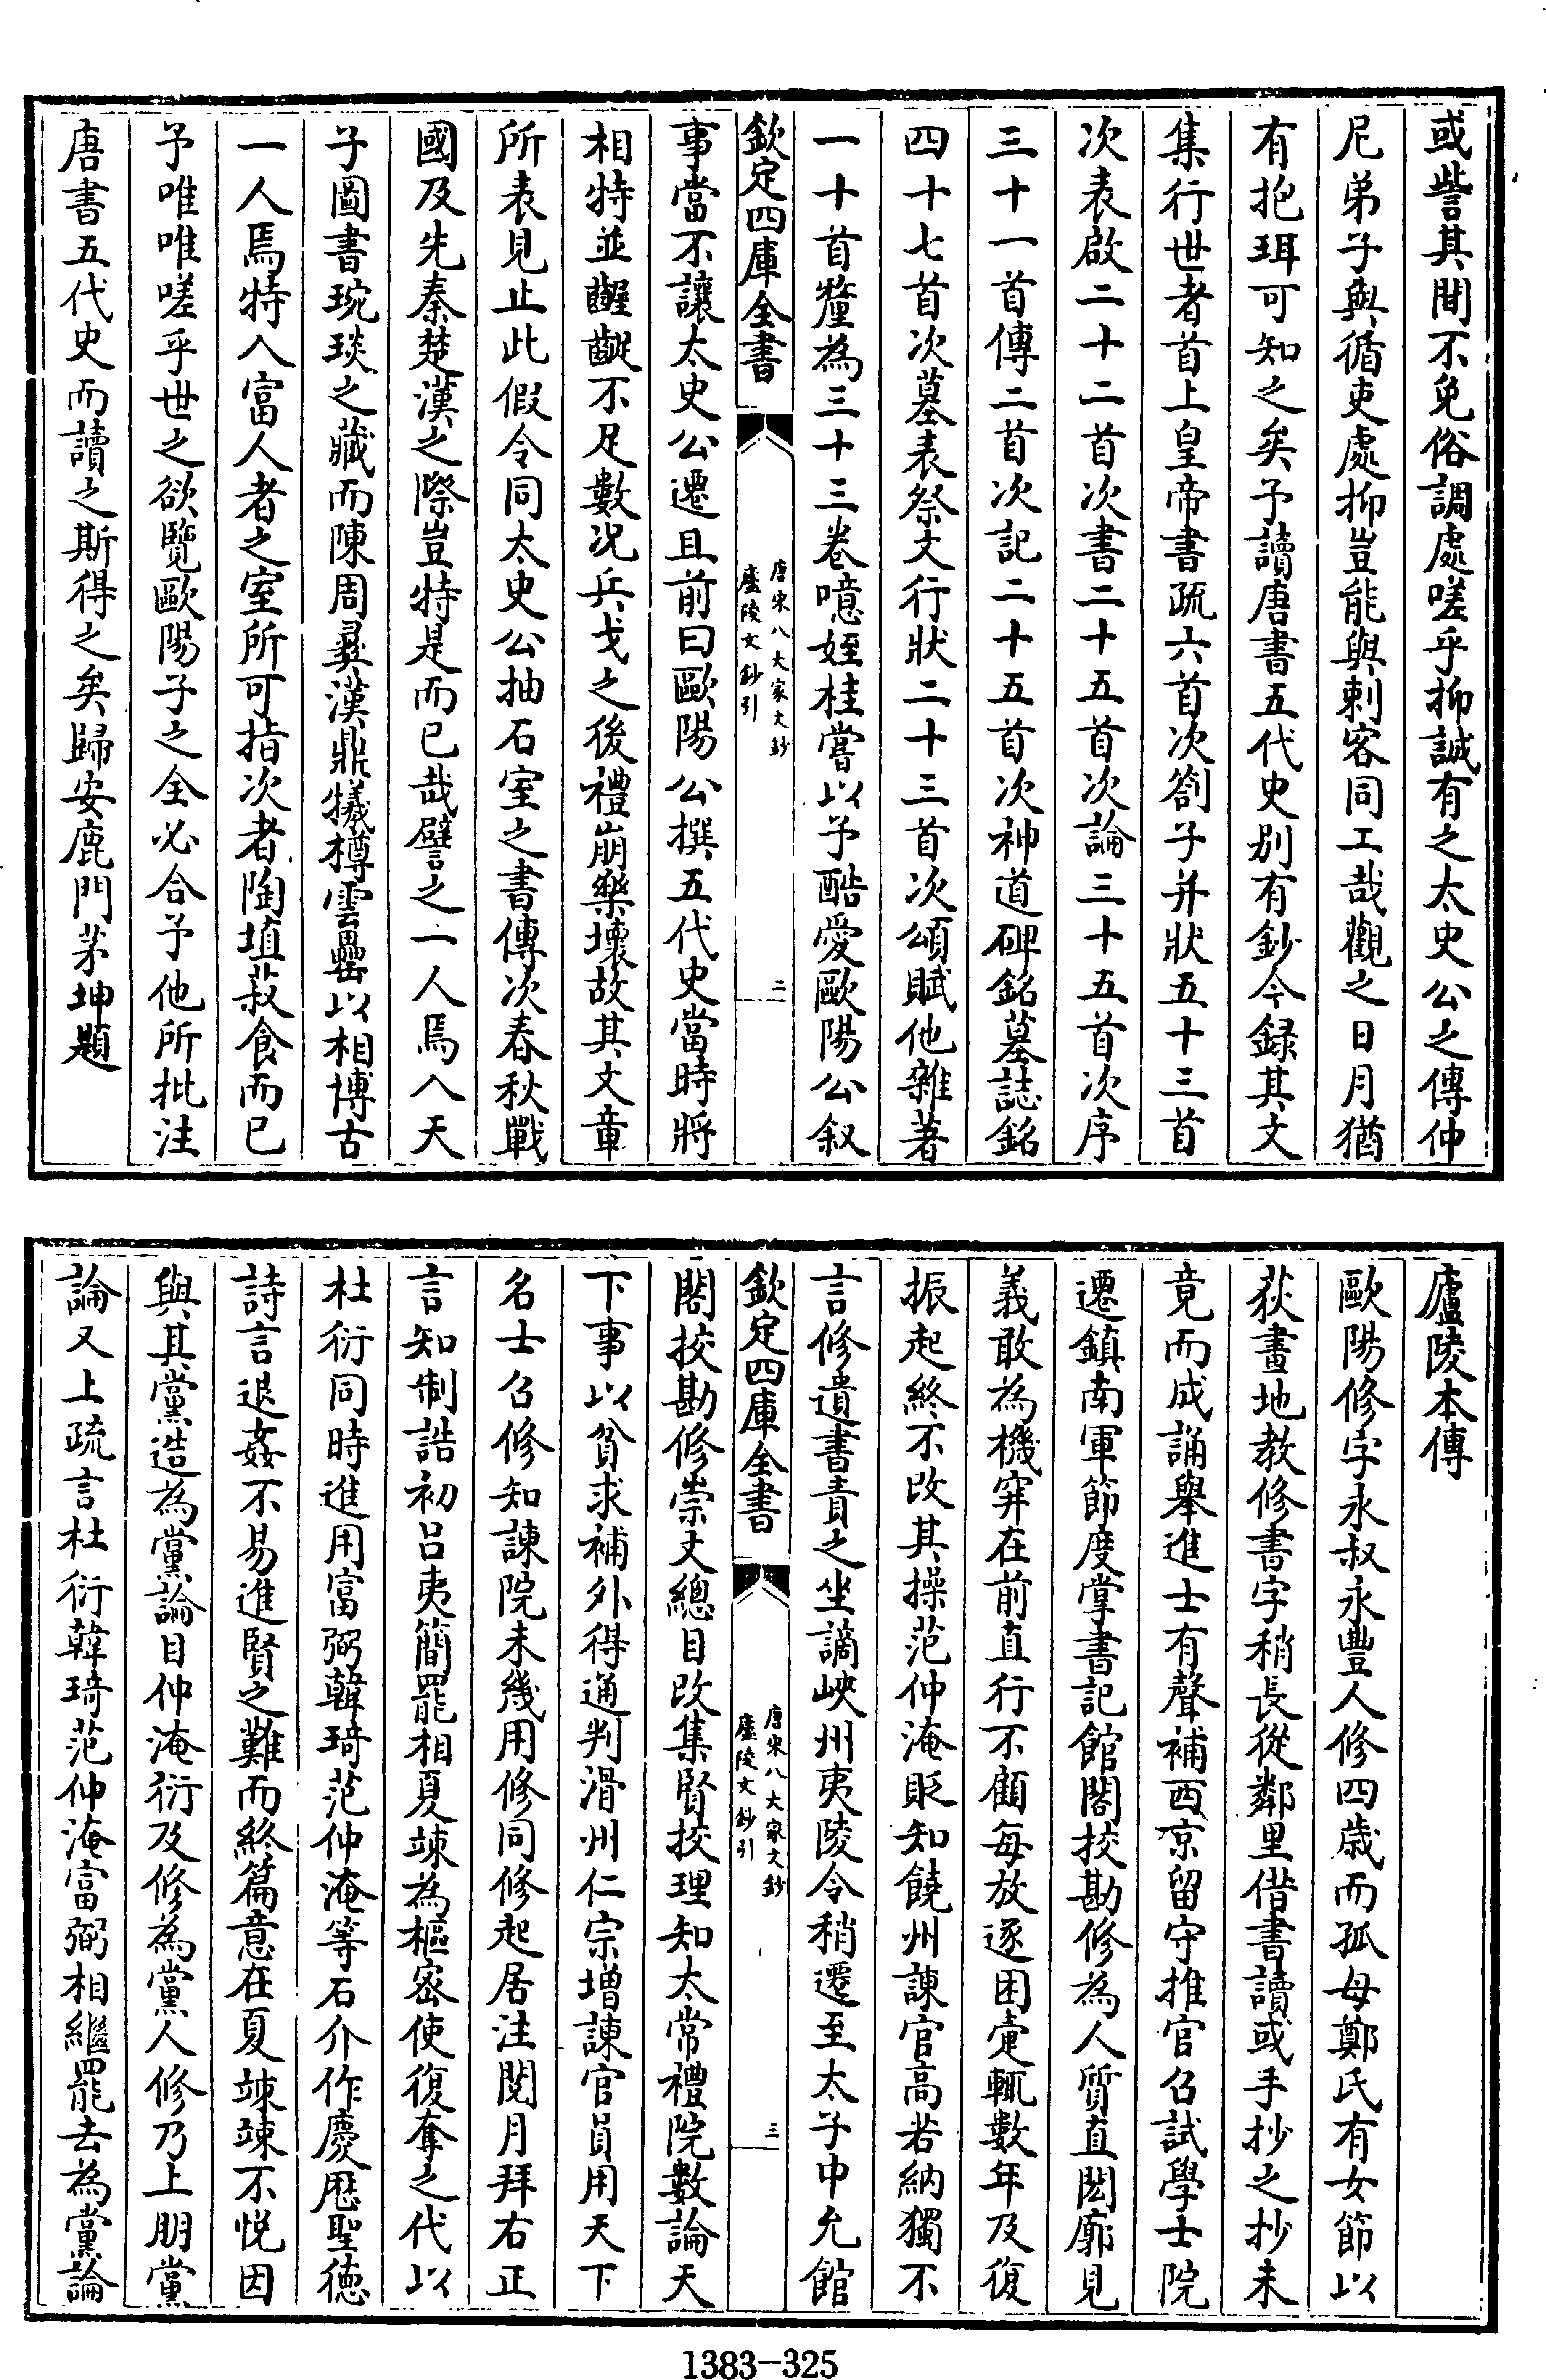 或訾其間不免俗調處嗟乎抑誠有之太史公之傳仲
尼弟子與循吏處抑豈能與刺客同工哉觀之日月猶
有抱珥可知之矣予讀唐書五代史別有鈔今録其文
集行世者首上皇帝書疏六首次劄子并狀五十三首
次表啟二十二首次書二十五首次論三十五首次序
三十一首傳二首次記二十五首次神道碑銘墓誌銘
四十七首次墓表祭文行狀二十三首次頌賦他雜著
一十首釐為三十三卷噫姪桂嘗以予酷愛歐陽公叙
欽定四庫全書
唐宋八大家文鈔
廬陵文鈔引
二
事當不讓太史公遷且前曰歐陽公撰五代史當時將
相特並齷齪不足數况兵戈之後禮崩樂壞故其文章
所表見止此假令同太史公抽石室之書傳次春秋戰
國及先秦楚漢之際豈特是而已哉譬之一人焉入天
子圖書琬琰之藏而陳周彞漢鼎犧樽雲罍以相博古
一人焉特入富人者之室所可指次者陶埴菽食而已
予唯唯嗟乎世之欲覽歐陽子之全必合予他所批注
唐書五代史而讀之斯得之矣歸安鹿門茅坤題
廬陵本傳
歐陽修字永叔永豐人修四歲而孤母鄭氏有女節以
荻畫地教修書字稍長從鄰里借書讀或手抄之抄未
竟而成誦舉進士有聲補西京留守推官召試學士院
遷鎮南軍節度掌書記館閣挍勘修為人質直閎廓見
義敢為機穽在前直行不顧每放逐困躓輒數年及復
振起終不改其操范仲淹貶知饒州諫官高若納獨不
言修遺書責之坐謫峽州夷陵令稍遷至太子中允館
欽定四庫全書
唐宋八大家文鈔
廬陵文鈔引
三
閣挍勘修崇文總目改集賢挍理知太常禮院數論天
下事以貧求補外得通判滑州仁宗增諫官員用天下
名士召修知諫院未幾用修同修起居注閱月拜右正
言知制誥初吕夷簡罷相夏竦為樞密使復奪之代以
杜衍同時進用富弼韓琦范仲淹等石介作慶厯聖德
詩言退姦不易進賢之難而終篇意在夏竦竦不悅因
與其黨造為黨論目仲淹衍及修為黨人修乃上朋黨
論又上疏言杜衍韓琦范仲淹富弼相繼罷去為黨論
1383-325